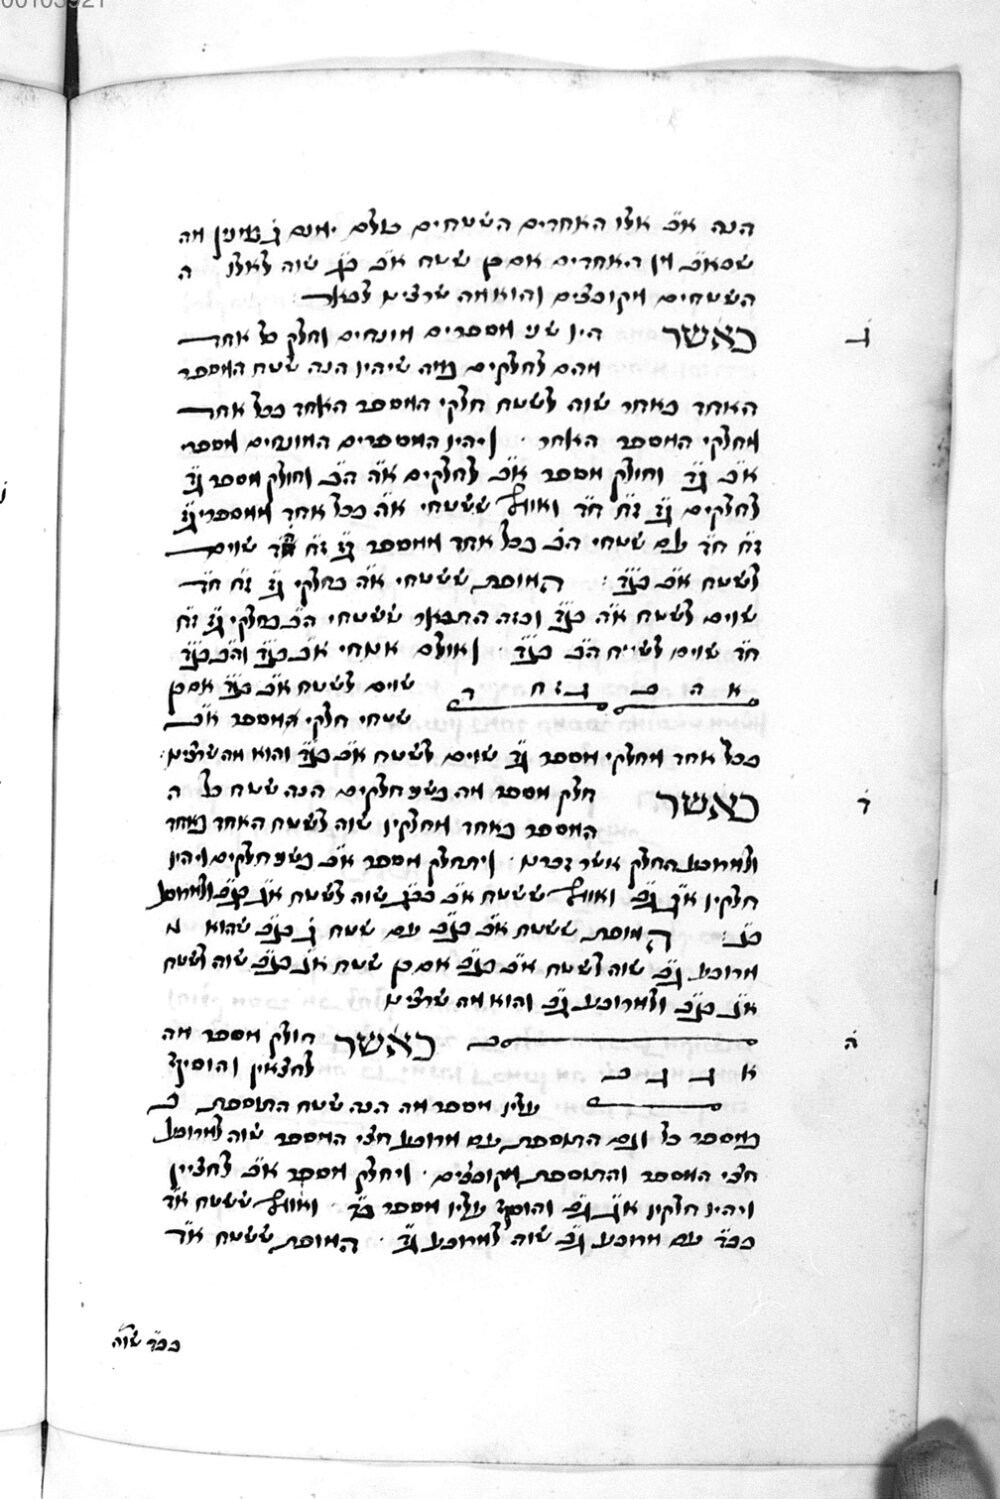 הנה א״ב אלו האחרים השטחים כולם
שטא״ב מן האחרים אם כן שטח א״ב ב״ג שוה לאלו ה
השטחים מקובצים והוא מה שרצינו לבאר
ג
כאשר היו שני מספרים מונחים וחלק כל אחד
מהם לחלקים כמה שיהיו הנה שטח המספר
האחד באחר שוה לשטח חלקי המספר האחד בכל אחד
מחלקי המספר האחר · ויהיו המספרים המונחים מספרי
א״ב ג״ד וחולק מספר א״ב לחלקים א״ה ה״ב וחולק מספר ג״ד
לחלקים ג״ז ז״ח ח״ד ואומר ששטחי א״ה בכל אחד ממספרי ג״ז
ז״ח ח״ד עם שטחי ה״ב בכל אחד ממספר ג״ז ז״ח ח״ד שוים
לשטח א״ב בג״ד : המופת ששטחי א״ה בחלקי ג״ז ז״ח ח״ד
שוים לשטח א״ה בג״ד ובזה התבאר ששטחי ה״ב בחלקי ג״ז ז״ח
ח״ד שוים לשטח ה״ב בג״ד · ואולם שטחי א״ה בג״ד וה״ב בג״ד
א ה ב ג ז ח ד שוים לשטח א״ב בג״ד אם כן
שטחי חלקי המספר א״ב
בכל אחד מחלקי מספר ג״ד שוים לשטח א״ב בג״ד והוא מה שרצינו :
ד
כאשר חלק מספר מה בשני חלקים הנה שטח כל ה
המספר באחד מחלקיו שוה לשטח האחד באחר
ולמרובע החלק אשר זכרנו · ויתחלק מספר א״ב בשני חלקים ויהיו
חלקיו א״ג ג״ב ואומר ששטח א״ב בב״ג שוה לשטח א״ג בג״ב ולמרובע
ב״ג : המופת ששטח א״ב בג״ב עם שטח ג״ב בג״ב שהוא מ
מרובע ג״ב שוה לשטח א״ב בג״ב אם כן שטח א״ב בג״ב שוה לשטח
א״ג בג״ב ולמרובע ג״ב והוא מה שרצינו
ה
ב כאשר חולק מספר מה
א ג ב לחצאין והוסיף
עליו מספר מה הנה שטח התוספת ב
במספר כל וגם התוספת עם מרובע חצי המספר שוה למרובע
חצי המספר והתוספת מקובצים · ויחלק מספר א״ב לחציין
ויהיו חלקיו א״ג ג״ב והוסיף עליו מספר ב״ד · ואומר ששטח א״ד
בב״ד עם מרובע ג״ב שוה למרובע ג״ד · המופת ששטח א״ד
בב״ד שוה